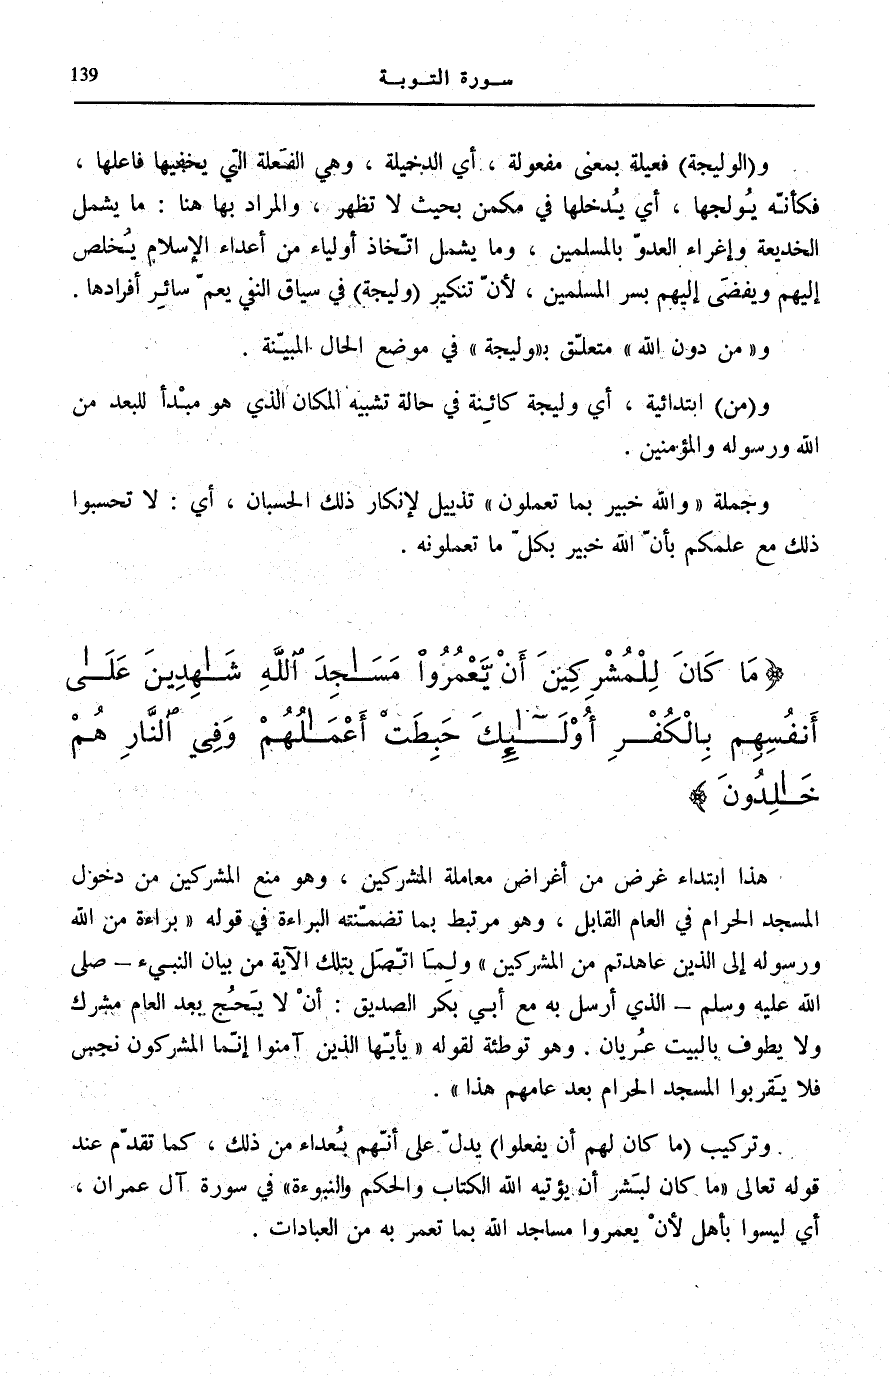 139 سورة التوبة
و(الوليجة) فعيلة بمعنى مفعولة ، أي الدخيلة ، وهي الفَعلة الّتي يخفيها فاعلها ،
فكأنّه يُولجها ، أي يُدخلها في مكمن بحيث لا تظهر ، والمراد بها هنا : ما يشمل
الخديعة وإغراء العدوّ بالمسلمين ، وما يشمل اتّخاذ أولياء من أعداء الإسلام يُخلص
إليهم ويفضَى إليهم بسر المسلمين ، لأنّ تنكير (وليجة) في سياق النفي يعمّ سائر أفرادها .
و« من دون الله » متعلّق بـ«وليجة » في موضع الحال المبيّنة .
و(من) ابتدائية ، أي وليجة كائنة في حالة تشبيه المكان الذي هو مبْدأ للبعد من
الله ورسوله والمؤمنين .
وجملة « والله خبير بما تعملون » تذييل لإنكار ذلك الحسبان ، أي : لا تحسبوا
ذلك مع علمكم بأنّ الله خبير بكلّ ما تعملونه .
﴿مَا كَانَ لِلْمُشْرِكِينَ أَنْ يَّعْمُرُواْ مَسَـٰجِدَ ٱللَّهِ شَـٰهِدِينَ عَلَـىٰ
أَنفُسِهِم بِالْكُفْـرِ أُوْلَـٰٓئِكَ حَبِطَتْ أَعْمَـٰلُهُمْ وَفِي ٱلنَّارِ هُمْ
خَـٰلِدُونَ ﴾
هذا ابتداء غرض من أغراض معاملة المشركين ، وهو منع المشركين من دخول
المسجد الحرام في العام القابل ، وهو مرتبط بما تضمّنته البراءة في قوله « براءة من الله
ورسوله إلى الذين عاهدتم من المشركين » ولِمـَا اتّصَل بتلك الآية من بيان النبـيء – صلى
الله عليه وسلم – الذي أرسل به مع أبـي بكر الصديق : أنْ لا يَحُج بعد العام مشرك
ولا يطوف بالبيت عُريان . وهو توطئة لقوله « يأيّها الذين آمنوا إنّما المشركون نجس
فلا يَقربوا المسجد الحرام بعد عامهم هذا » .
وتركيب (ما كان لهم أن يفعلوا) يدلّ على أنّهم بُعداء من ذلك ، كما تقدّم عند
قوله تعالى «ما كان لبَشر أن يؤتيه الله الكتاب والحكم والنبوءة» في سورة آل عمران ،
أي ليسوا بأهل لأنْ يعمروا مساجد الله بما تعمر به من العبادات .